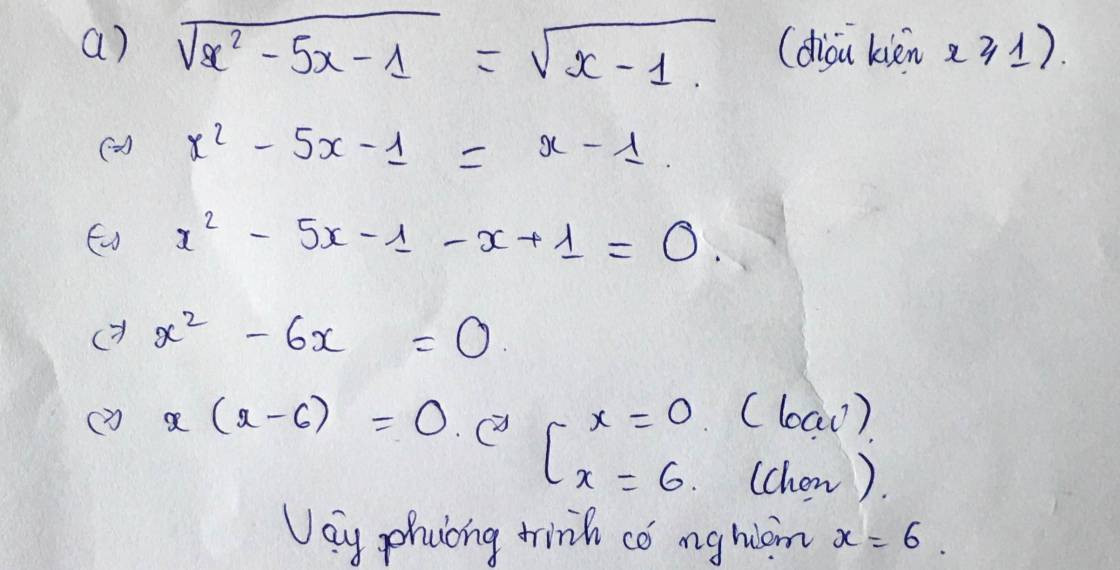 a) √(x² - 5x - 1) = √(x - 1). (điều kiện x ≥ 1).
⇔ x² - 5x - 1 = x - 1.
⇔ x² - 5x - 1 - x + 1 = 0.
⇔ x² - 6x = 0.
⇔ x (x - 6) = 0. ⇔ [ x = 0. (loại).
x = 6. (chọn).
Vậy phương trình có nghiệm x = 6.